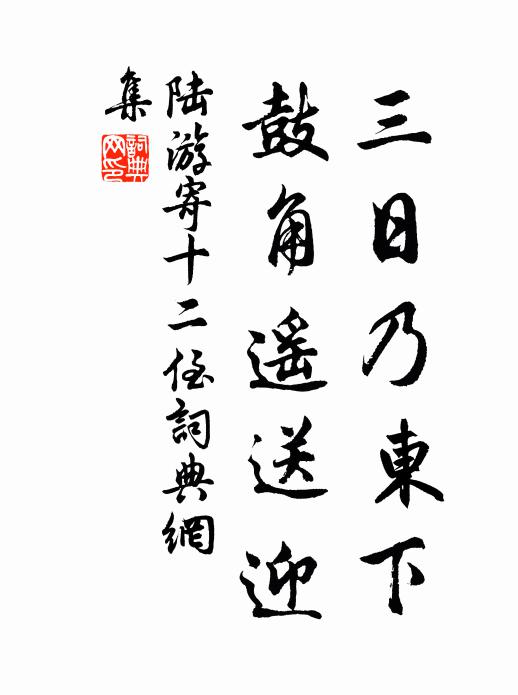 三日乃東下
鼓角遥送迎
陆游寄十二侄詞典網
集
詞典网印